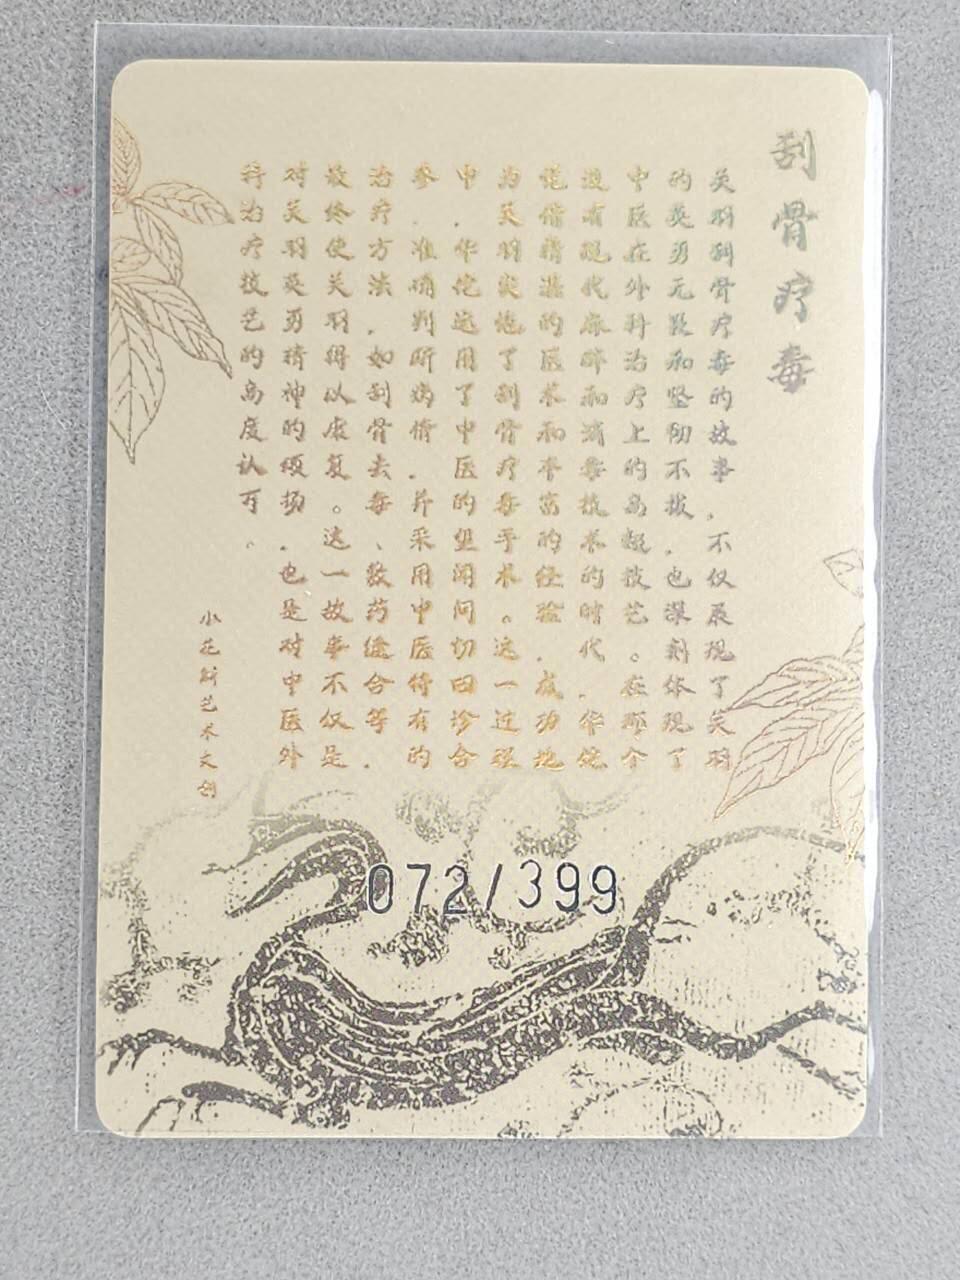 刮骨疗毒
关羽刮骨疗毒的故事,不仅展现了关羽
的英勇无畏和坚韧不拔,也深刻体现了
中医在外科治疗上的高超技艺。在那个
没有现代麻醉和消毒技术的时代,华佗
凭借精湛的医术和丰富的经验,成功地
为关羽实施了刮骨疗毒手术。这一过程
中,华佗运用了中医的望闻问切四诊合
参,准确判断病情,并采用中医特有的
治疗方法,如刮骨去毒、敷药缝合等,
最终使关羽得以康复。这一故事不仅是
对关羽英勇精神的颂扬,也是对中医外
科治疗技艺的高度认可。
小花艺术文创
072/399